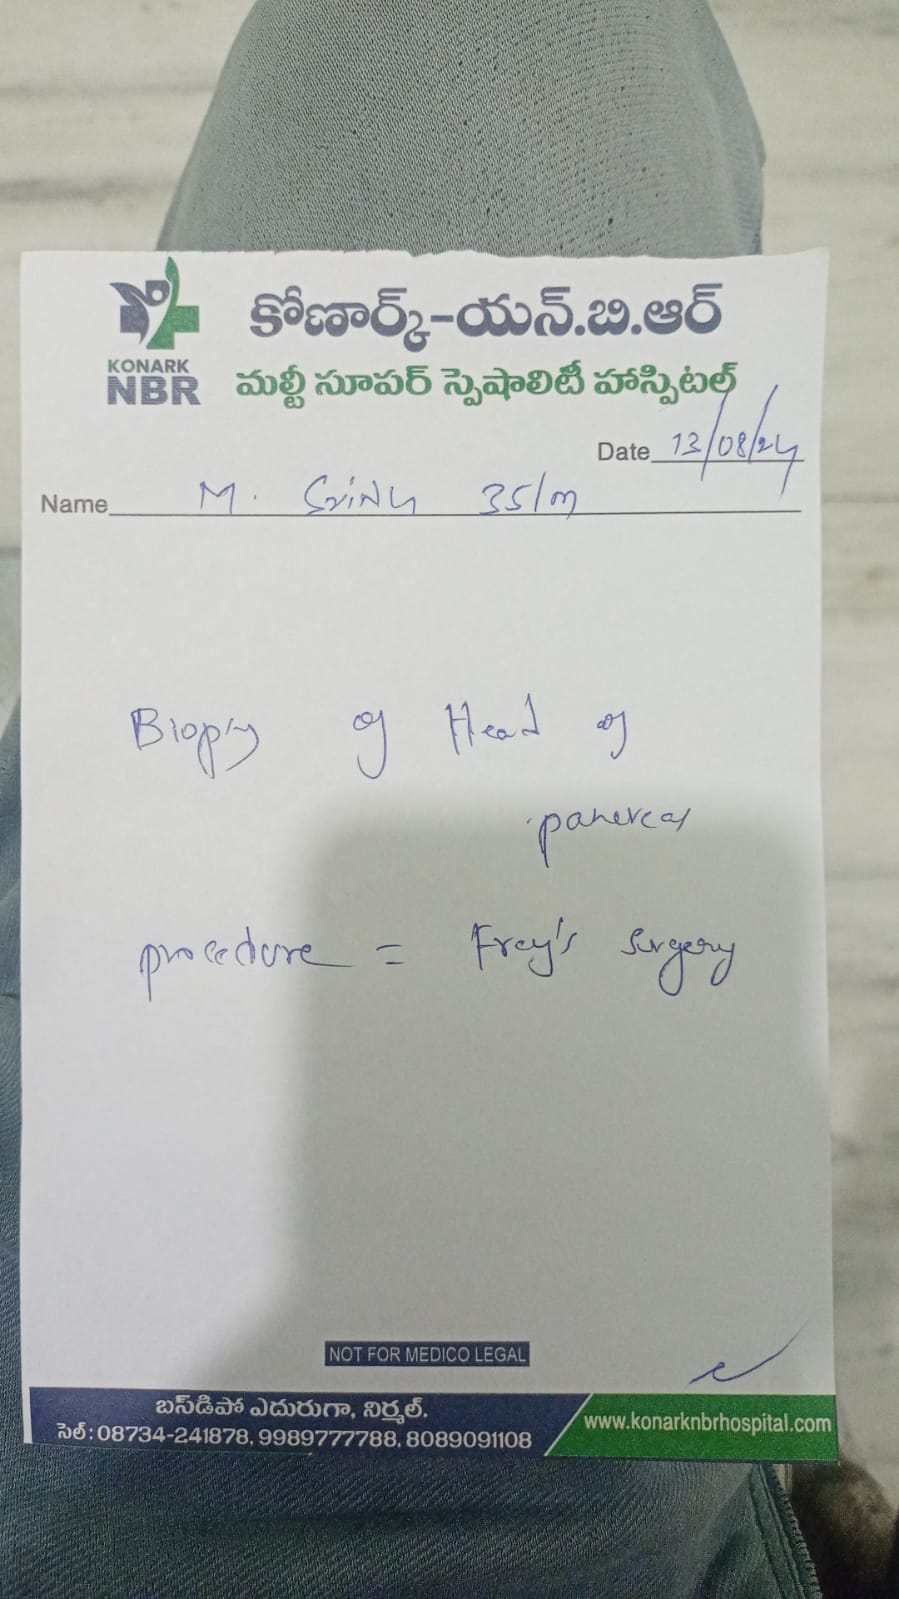 కోణార్క్-యన్.బి.ఆర్
KONARK
NBR
మల్టీ సూపర్ స్పెషాలిటీ హాస్పిటల్
Date 13/08/24
Name M. Srinu 35/m
Biopsy of Head of
pancreas
procedure = Frey's surgery
NOT FOR MEDICO LEGAL
బస్‌డిపో ఎదురుగా, నిర్మల్.
సెల్ : 08734-241878, 9989777788, 8089091108
www.konarknbrhospital.com